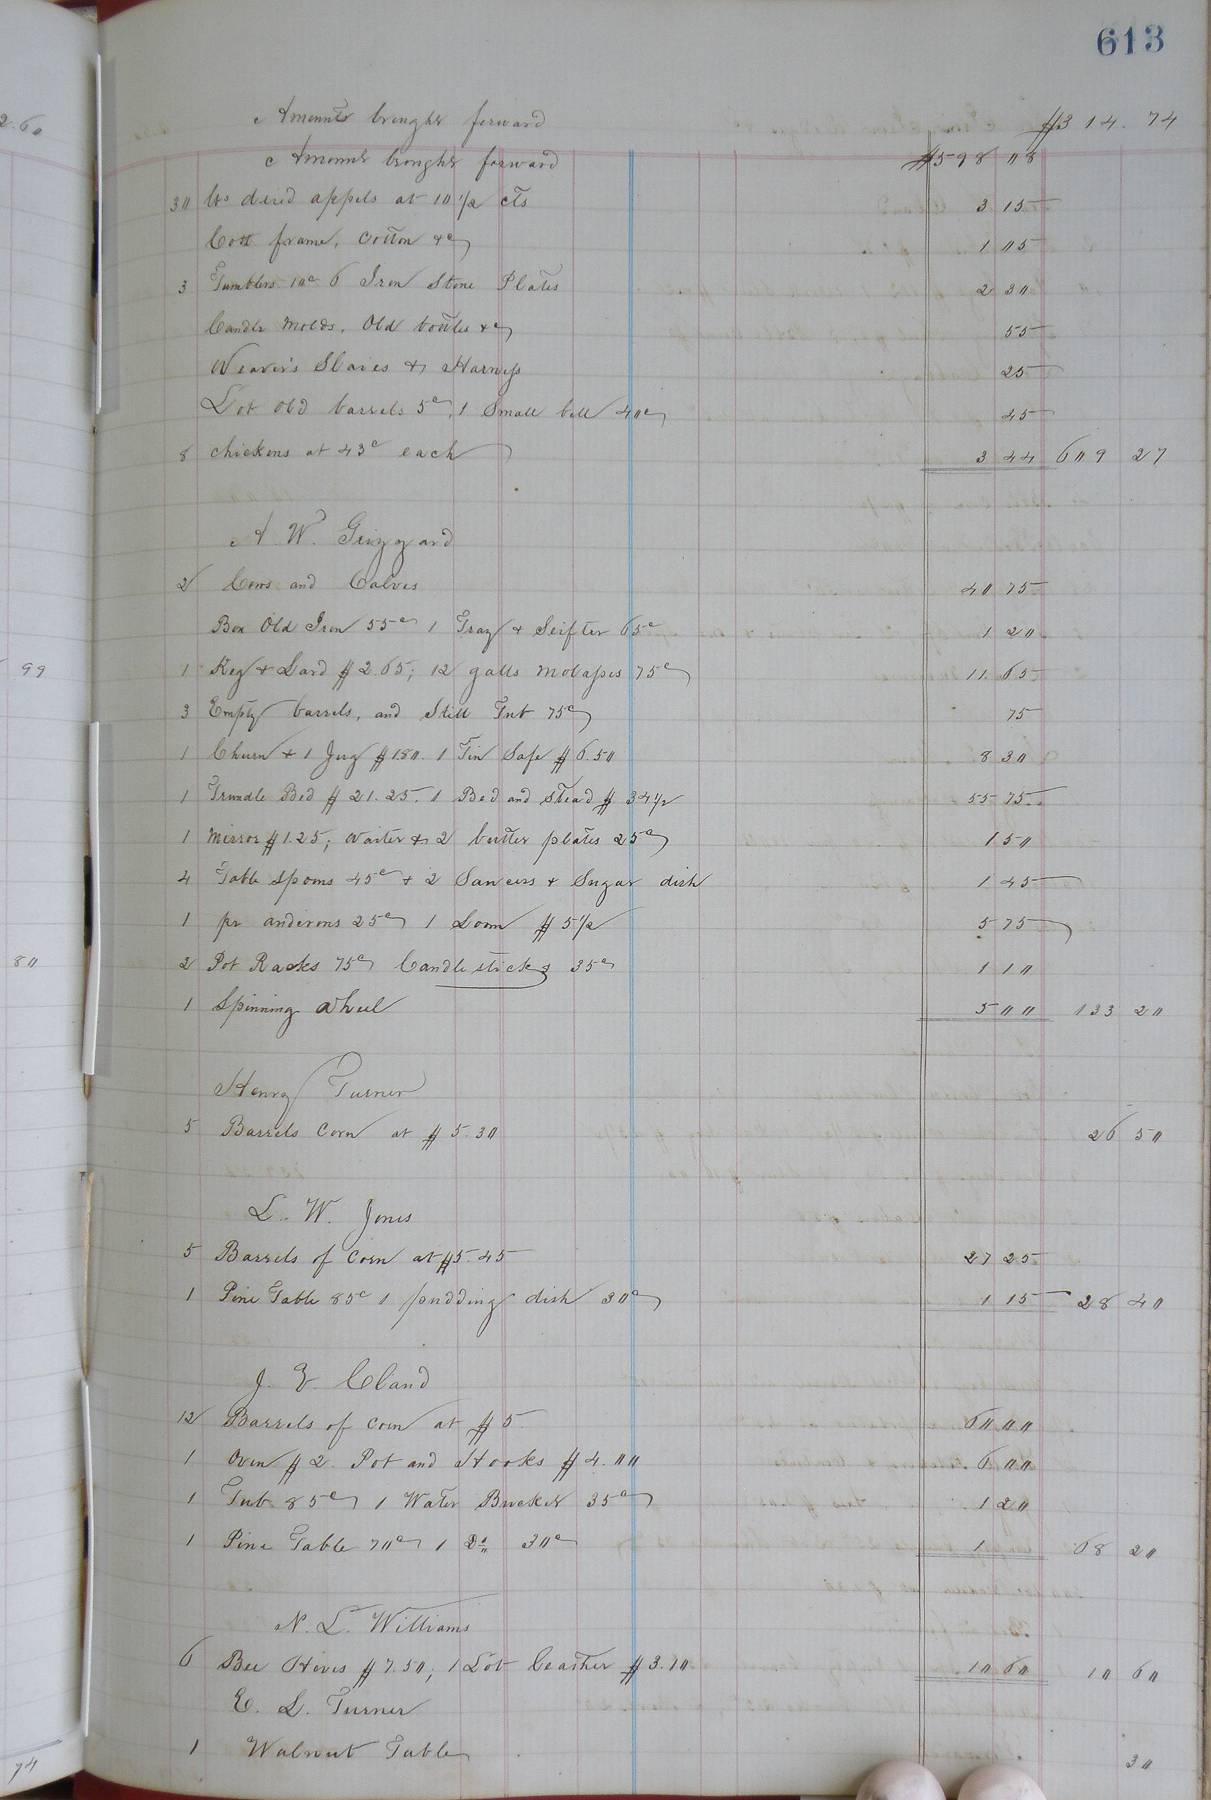 613
Amounts brought forward $314.74
Amount brought forward $598 08
30 lbs dried appels at 10 1/2 cts 3 15
Cott frame, Cotton &c 1 05
3 Tumblers 10c 6 Iron Stone Plates 2 30
Candle Molds, Old bottles &c 55
Weavers Slaies & Harness 25
Lot old barrels 5c, 1 Small bell 40c 45
8 chickens at 43c each 3 44 609 27
A W. Grizzard
2 Cows and Calves 40 75
Box Old Iron 55c 1 Tray & Seifter 65c 1 20
1 Keg & Lard $2.65; 12 galls molasses 75c 11.65
3 Empty barrels, and Still Tub 75c 75
1 Churn & 1 Jug $1.80. 1 Tin Safe $6.50 8 30
1 Trundle Bed $21.25. 1 Bed and Stead $34 1/2 55 75
1 Mirror $1.25; Waiter & 2 butter plates 25c 1 50
4 Table Spoons 45c & 2 Saucers & Sugar dish 1 45
1 pr andirons 25c 1 Loom $5 1/2 5 75
2 Pot Racks 75c Candlesticks 35c 1 10
1 Spinning Wheel 5 00 133 20
Henry Turner
5 Barrels Corn at $5.30 26 50
L. W. Jones
5 Barrels of Corn at $5.45 27 25
1 Pine Table 85c 1 pudding dish 30c 1 15 28 40
J. E. Cland
12 Barrels of corn at $5 60 00
1 Oven $2 Pot and Hooks $4.00 6 00
1 Tub 85c 1 Water Bucket 35c 1 20
1 Pine Table 70c 1 Do 30c 1 68 20
N. L. Williams
6 Bee Hives $7.50; 1 Lot leather $3.10 10 60 10 60
E. L. Turner
1 Walnut Table 30
2.60
99
80
74